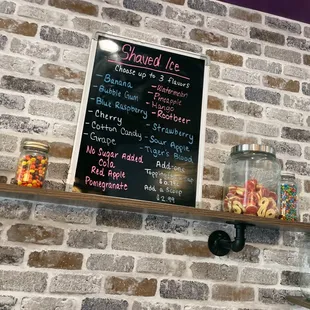 Shaved Ice
Choose up to 3 flavors
- Banana
- Bubble Gum
- Blue Raspberry
- Cherry
- Cotton Candy
- Grape
- Watermelon
- Pineapple
- Mango
- Rootbeer
- Strawberry
- Sour Apple
- Tiger's Blood
No Sugar Added
Cola
Red Apple
Pomegranate
Add-ons
Topping
Add a Scoop
$2.00